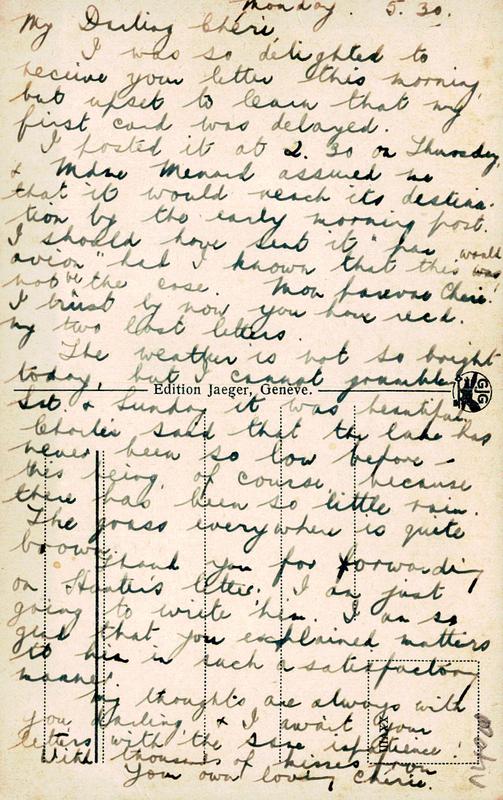 Monday. 5.30.
My Darling Chéri,
I was so delighted to
receive your letter this morning,
but upset to learn that my
first card was delayed.
I posted it at 2.30 on Thursday,
& Mdme Menard assured me
that it would reach its destina-
tion by the early morning post.
I should have sent it "par
avion" had I known that this would
not be the case. Mon pauvre Chéri.
I trust by now you have recd.
my two last letters.
The weather is not so bright
today, but I cannot grumble,
Edition Jaeger, Genève.
GJG
Sat. & Sunday it was beautiful.
Charlie said that the lake has
never been so low before -
this being, of course, because
there has been so little rain.
The grass everywhere is quite
brown.
Thank you for forwarding
on Hunter's letter. I am just
going to write him. I am so
glad that you explained matters
to him in such a satisfactory
manner.
My thoughts are always with
you darling, & I await your
letters with the same impatience!
With thousands of kisses from
Your own loving Chérie.